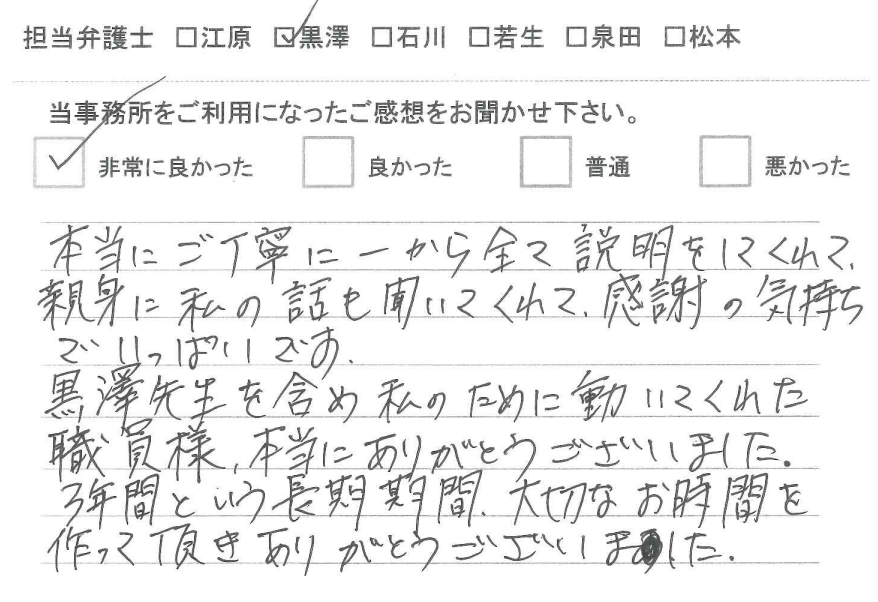 担当弁護士 □江原 ☑黒澤 □石川 □若生 □泉田 □松本
当事務所をご利用になったご感想をお聞かせ下さい。
☑ 非常に良かった □ 良かった □ 普通 □ 悪かった
本当にご丁寧に一から全て説明をしてくれて、
親身に私の話も聞いてくれて、感謝の気持ち
でいっぱいです。
黒澤先生を含め私のために動いてくれた
職員様、本当にありがとうございました。
3年間という長期期間、大切なお時間を
作って頂きありがとうございました。